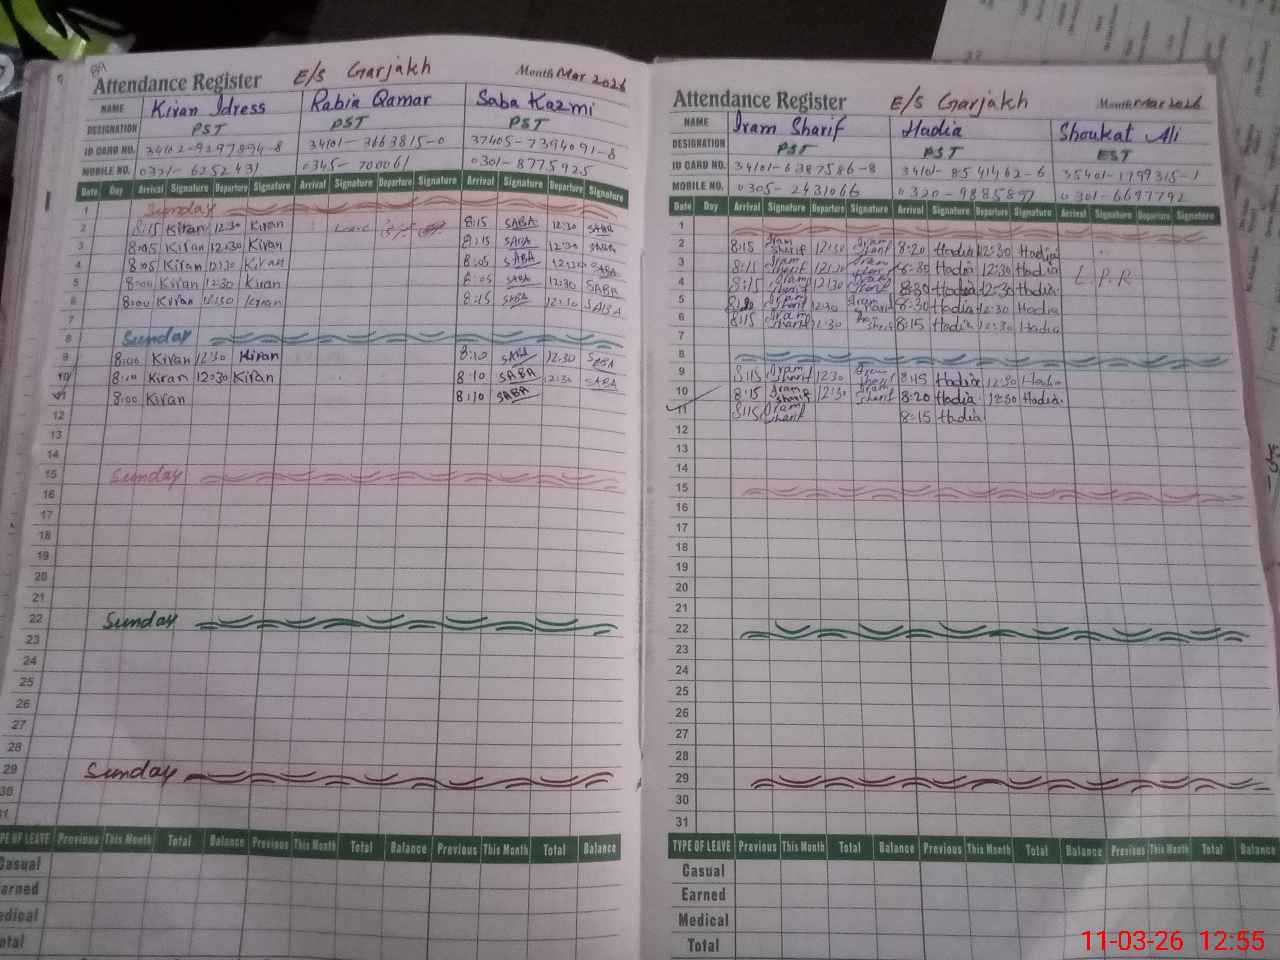 89
Attendance Register E/S Garjakh Month Mar 2026
NAME Kiran Idress Rabia Qamar Saba Kazmi
DESIGNATION PST PST PST
ID CARD NO. 34102-9297894-8 34101-3663815-0 37405-7394091-8
MOBILE NO. 0321-6252431 0345-700061 0301-8775925
Date Day Arrival Signature Departure Signature Arrival Signature Departure Signature Arrival Signature Departure Signature
1 Sunday
2 8:15 Kiran 12:30 Kiran Leave 8:15 SABA 12:30 SABA
3 8:05 Kiran 12:30 Kiran 8:15 SABA 12:30 SABA
4 8:05 Kiran 12:30 Kiran 8:05 SABA 12:30 SABA
5 8:00 Kiran 12:30 Kiran 8:05 SABA 12:30 SABA
6 8:00 Kiran 12:30 Kiran 8:15 SABA 12:30 SABA
7
8 Sunday
9 8:00 Kiran 12:30 Kiran 8:10 SABA 12:30 SABA
10 8:10 Kiran 12:30 Kiran 8:10 SABA 12:30 SABA
11 8:00 Kiran 8:10 SABA
12
13
14
15 Sunday
16
17
18
19
20
21
22 Sunday
23
24
25
26
27
28
29 Sunday
30
31
TYPE OF LEAVE Previous This Month Total Balance Previous This Month Total Balance Previous This Month Total Balance
Casual
Earned
Medical
Total
Attendance Register E/S Garjakh Month Mar 2026
NAME Iram Sharif Hadia Shoukat Ali
DESIGNATION PST PST EST
ID CARD NO. 34101-6387586-8 34101-8541462-6 35401-1799315-1
MOBILE NO. 0305-2431066 0320-9885897 0301-6697792
Date Day Arrival Signature Departure Signature Arrival Signature Departure Signature Arrival Signature Departure Signature
1
2 8:15 Iram Sharif 12:30 Iram Sharif 8:20 Hadia 12:30 Hadia
3 8:15 Iram Sharif 12:30 Iram Sharif 8:30 Hadia 12:30 Hadia L.P.R
4 8:15 Iram Sharif 12:30 Iram Sharif 8:30 Hadia 12:30 Hadia
5 Iram Sharif 12:30 Iram Sharif 8:30 Hadia 12:30 Hadia
6 8:15 Iram Sharif 12:30 Iram Sharif 8:15 Hadia 12:30 Hadia
7
8
9 8:15 Iram Sharif 12:30 Iram Sharif 8:15 Hadia 12:30 Hadia
10 8:15 Iram Sharif 12:30 Iram Sharif 8:20 Hadia 12:30 Hadia
11 8:15 Iram Sharif 8:15 Hadia
12
13
14
15
16
17
18
19
20
21
22
23
24
25
26
27
28
29
30
31
TYPE OF LEAVE Previous This Month Total Balance Previous This Month Total Balance Previous This Month Total Balance
Casual
Earned
Medical
Total
11-03-26 12:55